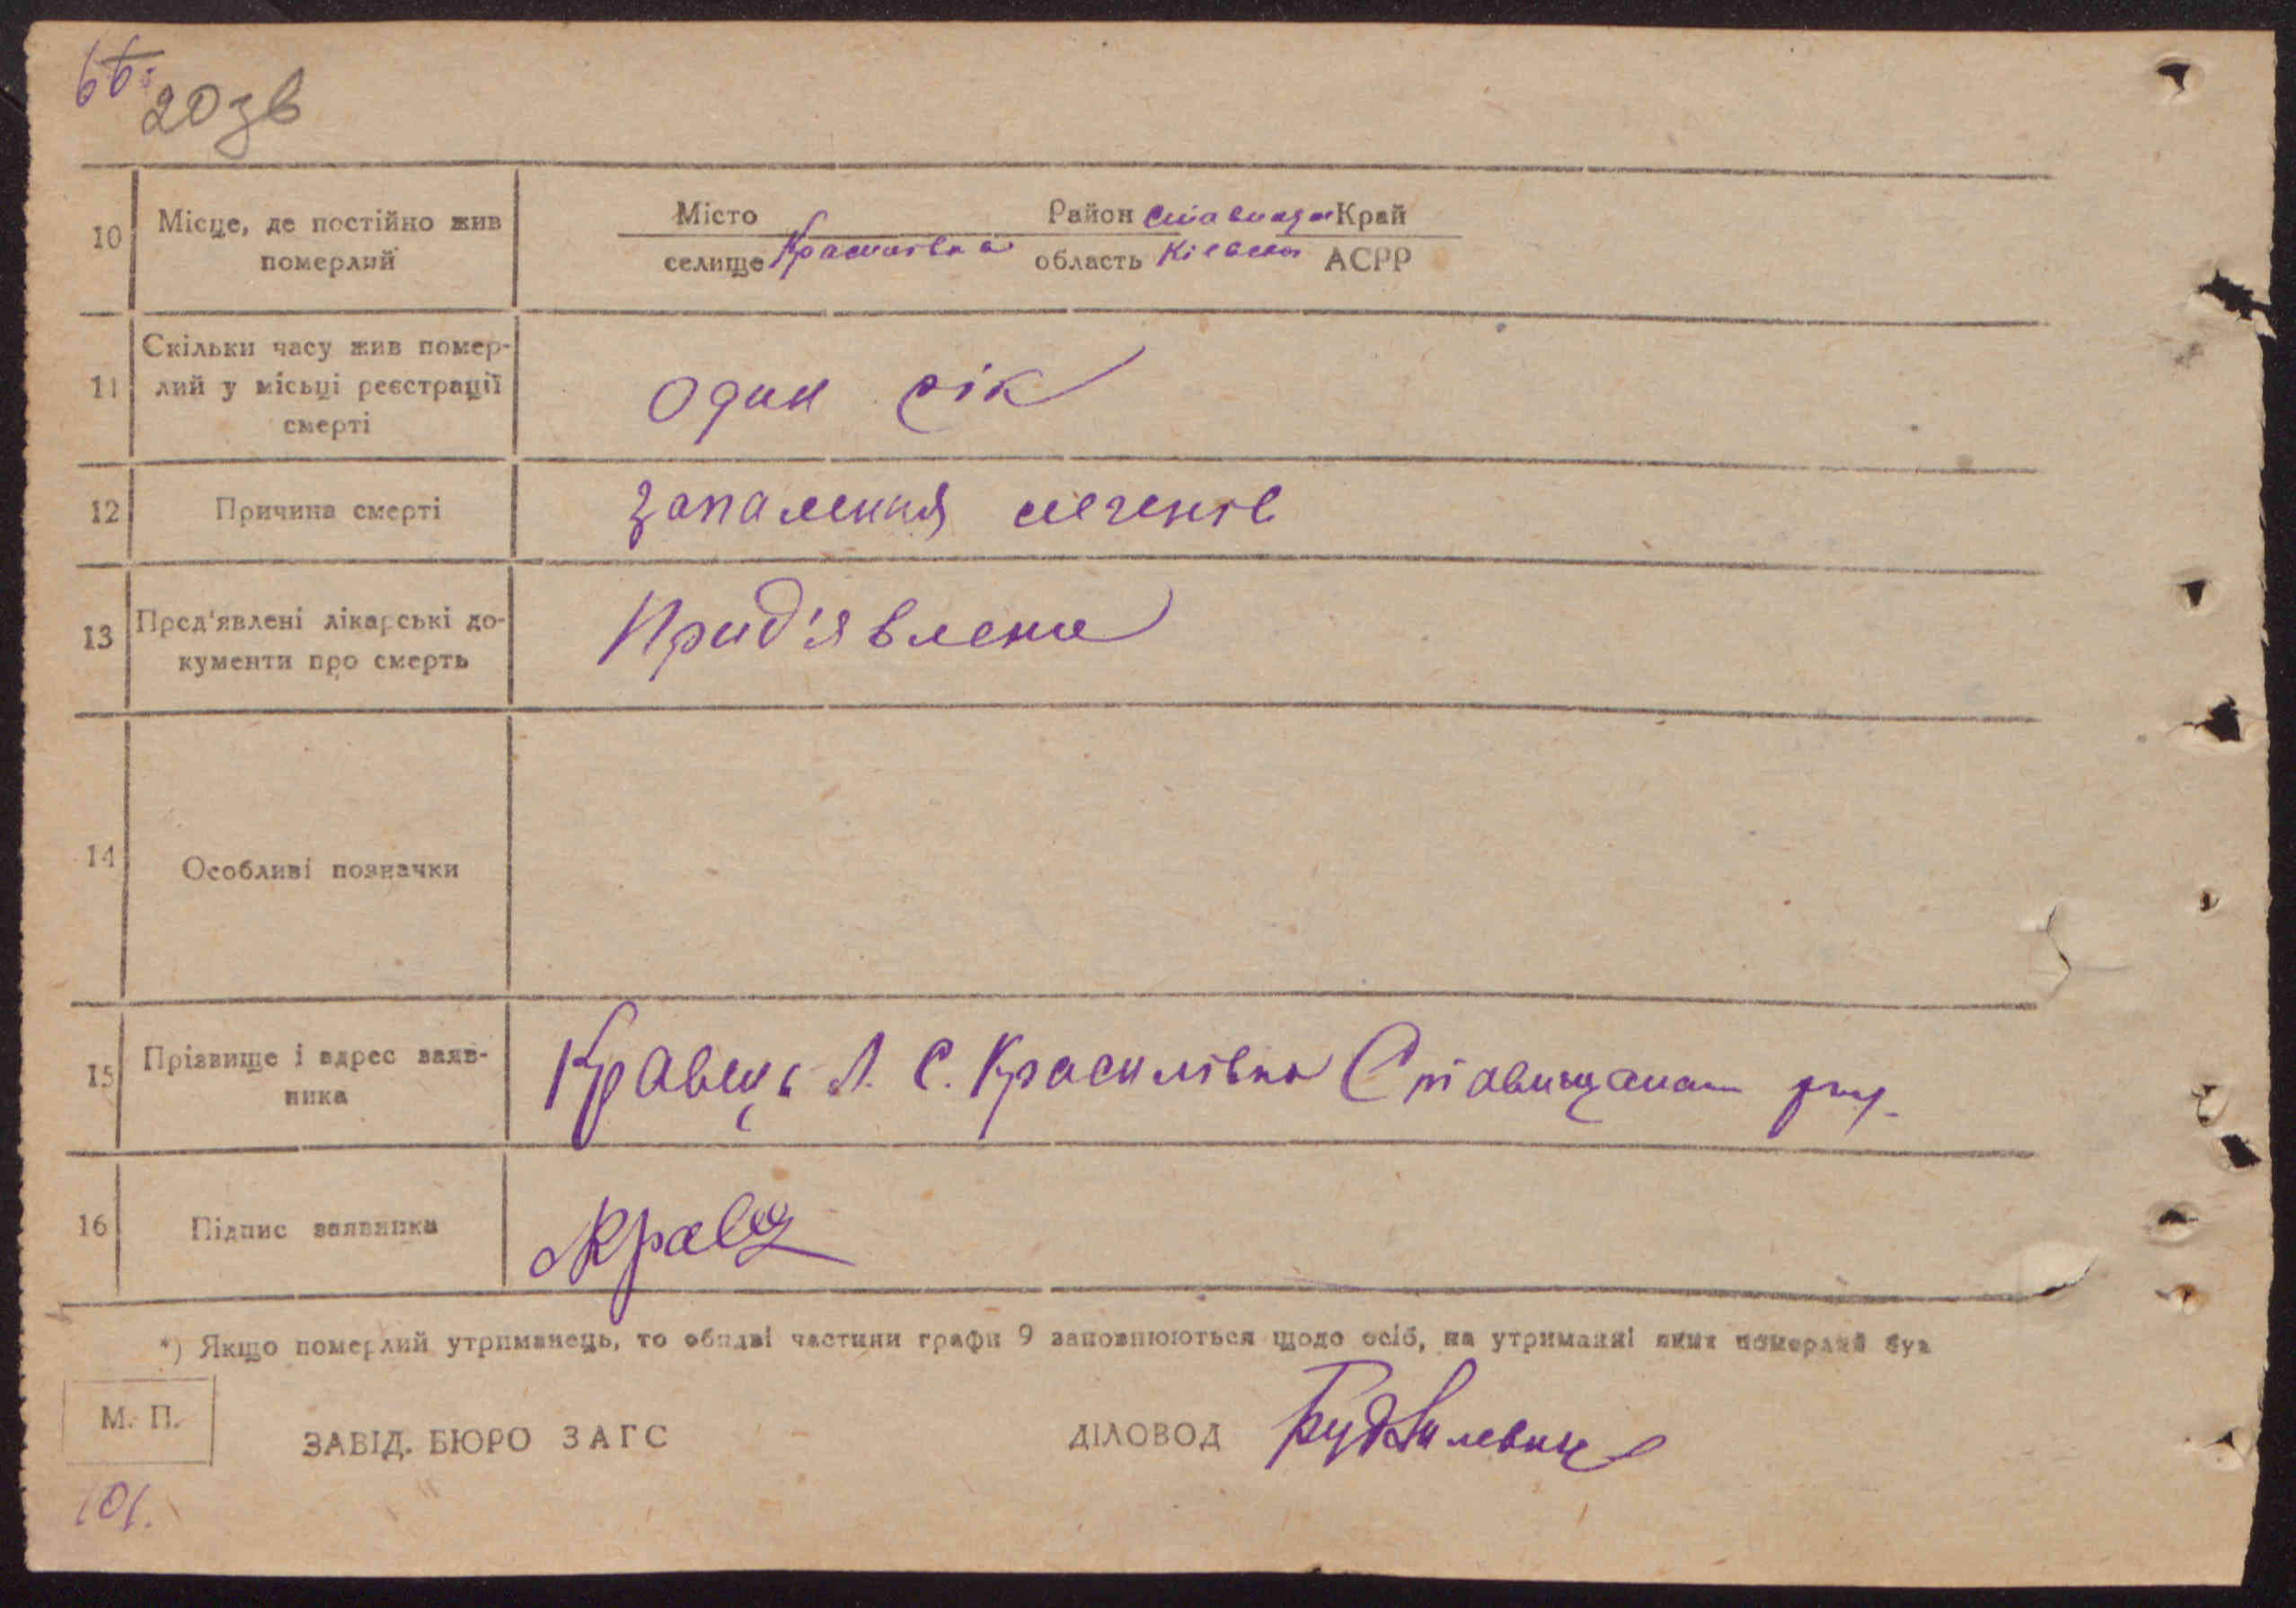 66
20зв
10 Місце, де постійно жив померлий
Місто Район Ставищан Край
селище Красилівка область Київська АСРР
11 Скільки часу жив померлий у місьці реєстрації смерті
один рік
12 Причина смерті
запалення легенів
13 Пред'явлені лікарські документи про смерть
Прид'явлени
14 Особливі позначки
15 Прізвище і адрес заявника
Кравець Л. С. Красилівка Ставищанск рну.
16 Підпис заявника
Кравец
*) Якщо померлий утриманець, то обидві частини графи 9 заповнюються щодо осіб, на утриманні яких померлий був
М. П.
ЗАВІД. БЮРО ЗАГС ДІЛОВОД
101.